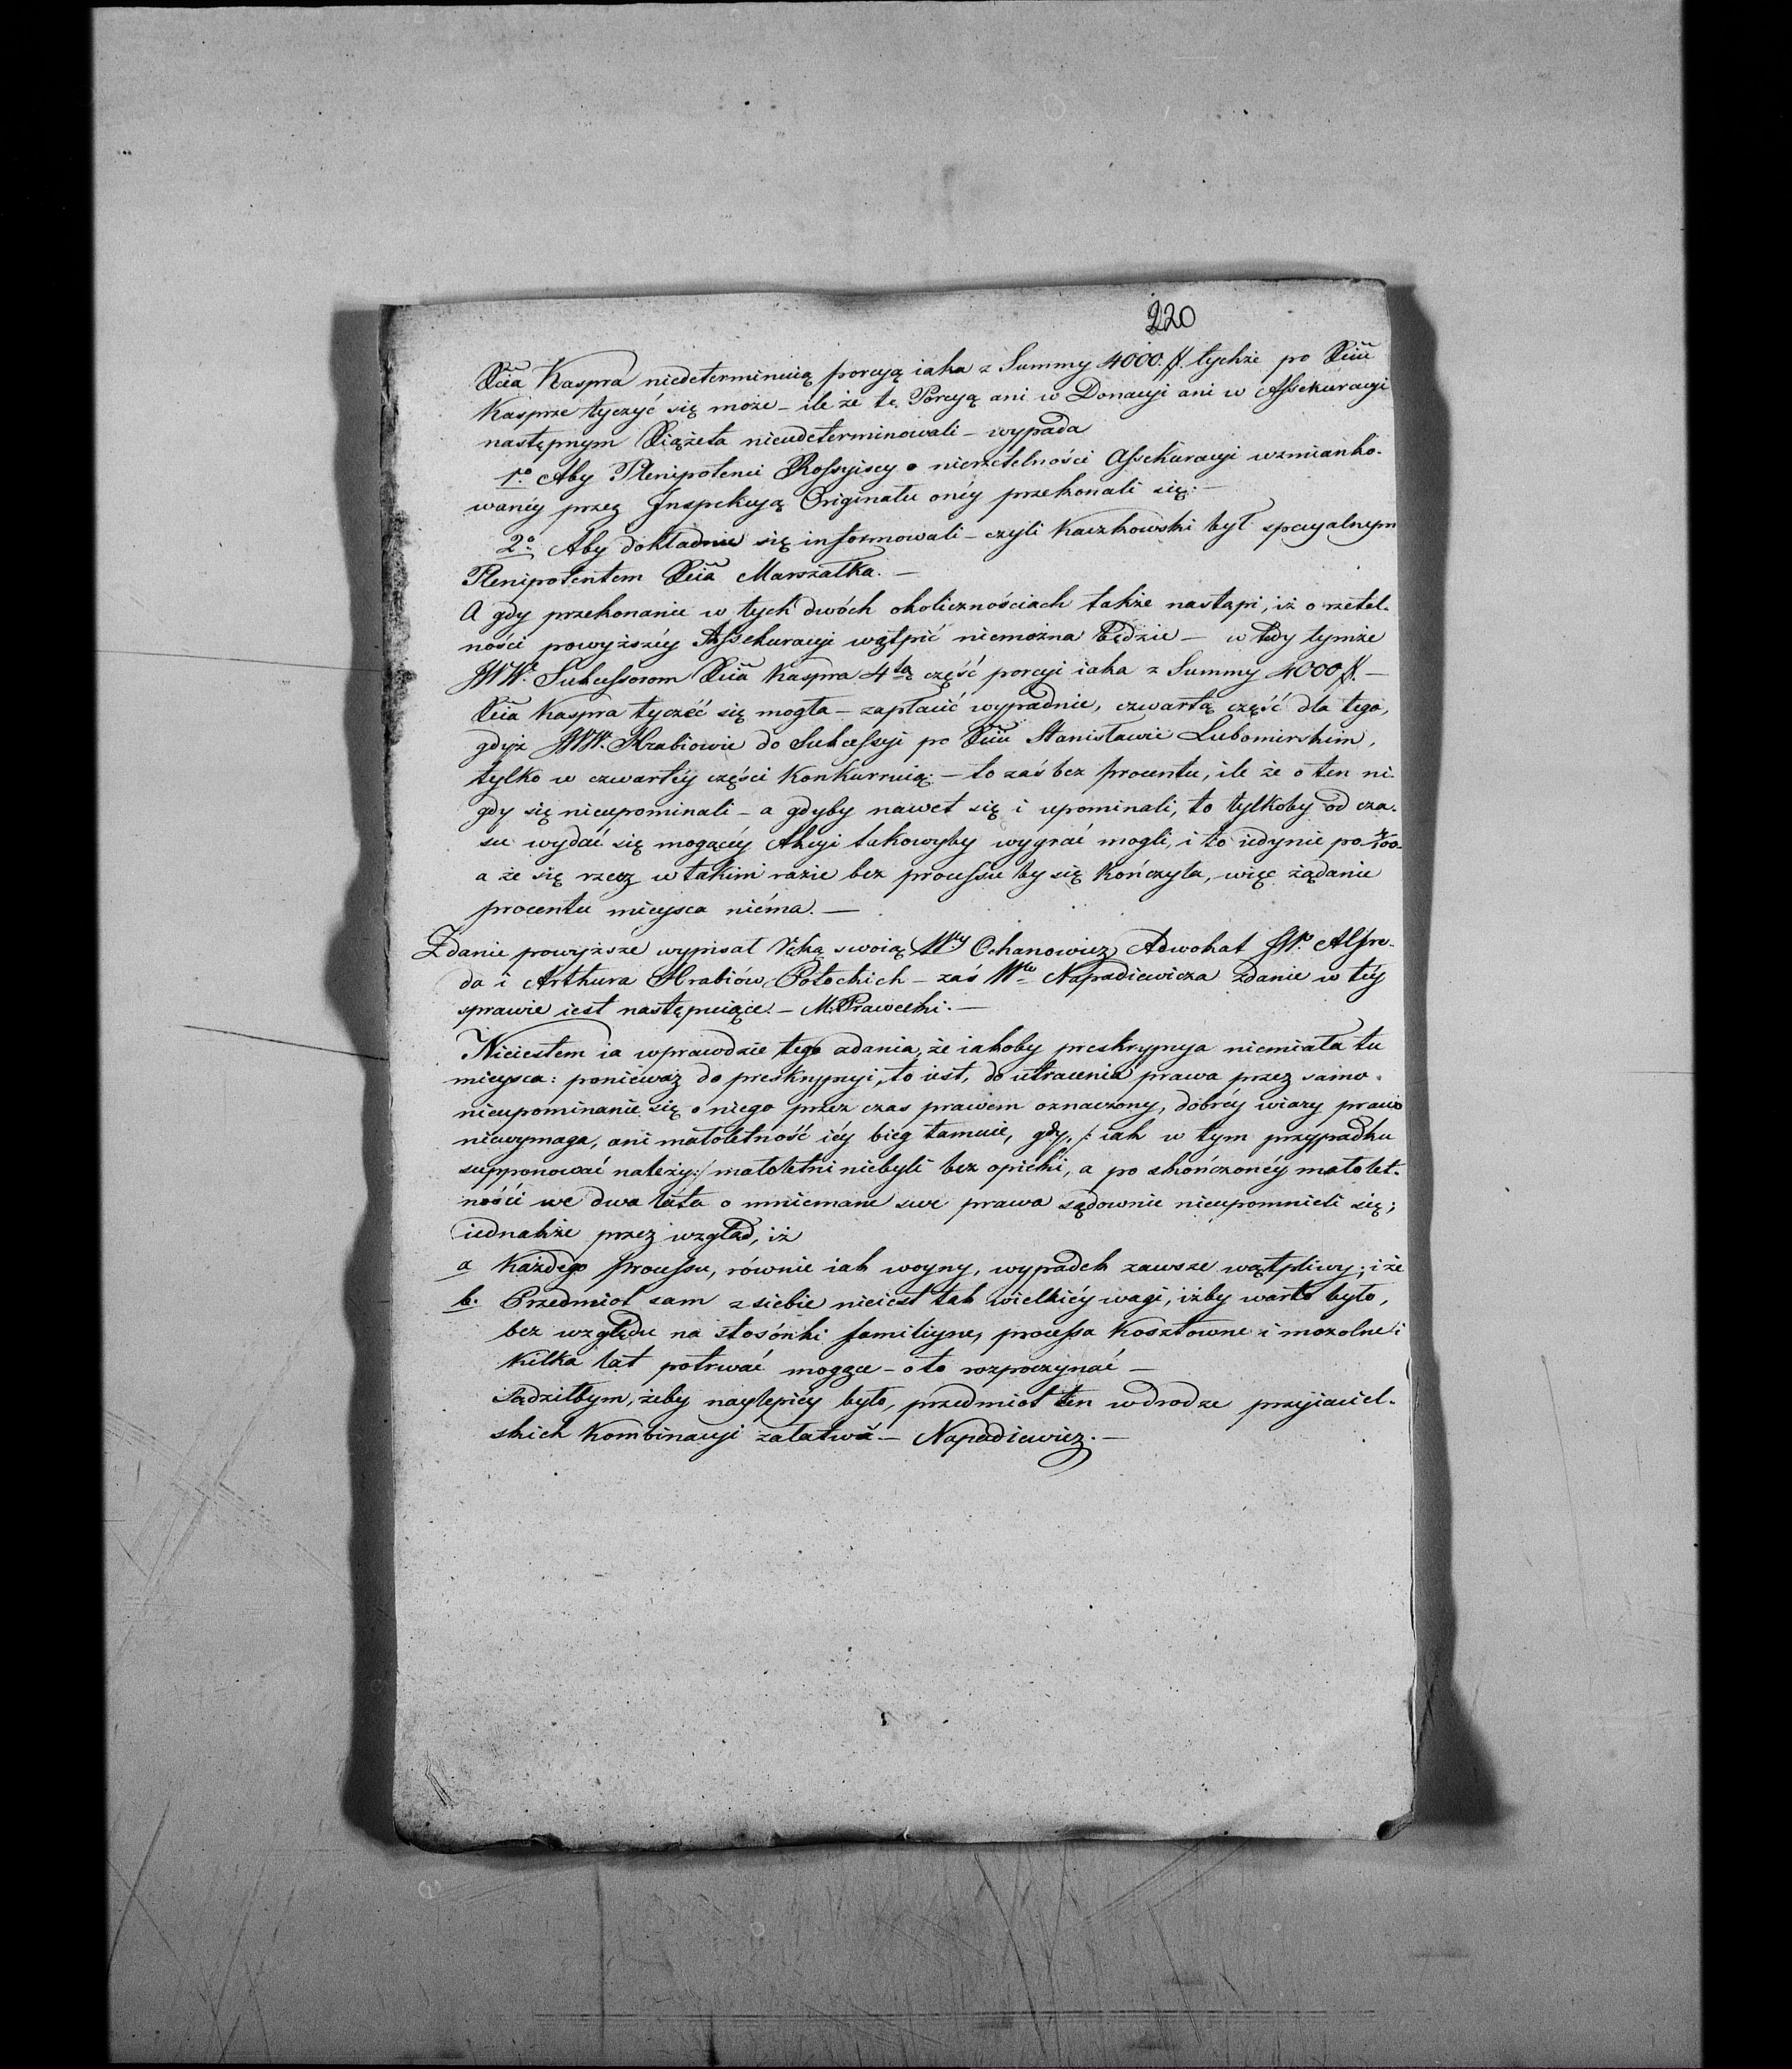 220
Xcia Kaspra niedeterminuią porcyą iaka z Summy 4000. #. tychże po Xciu
Kasprze tyczyć się może – ile że tę Porcyą ani w Donacyi ani w Assekuracyi
następnym Xiążęta nieudeterminowali – wypada
1o. Aby Plenipotenci Rossyiscy o nierzetelności Assekuracyi wzmianko-
wanéy przez Inspekcyą Originału onéy przekonali się: –
2o. Aby dokładnie się informowali – czyli Kaczkowski był specyalnym
Plenipotentem Xcia Marszałka. –
A gdy przekonanie w tych dwóch okolicznościach także nastąpi, iż o rzetel-
ności powyższéy Assekuracyi wątpić niemożna będzie – w tedy tymże
JWW. Sukcessorom Xcia Kaspra 4tą część porcyi iaka z Summy 4000 #. –
Xcia Kaspra tyczéć się mogła – zapłacić wypadnie, czwartą część dla tego,
gdyż JWW. Hrabiowie do Sukcessyi po Xciu Stanisławie Lubomirskim,
tylko w czwartéy części Konkurruią: – to zaś bez procentu, ile że o ten ni-
gdy się nieupominali – a gdyby nawet się i upominali, to tylkoby od cza-
su wydać się mogącéy Akcyi takowyby wygrać mogli, i to iedynie po 4/100 –
a że się rzecz w takim razie bez processu by się kończyła, więc żądanie
procentu mieysca niéma. –
Zdanie powyższe wypisał Ręką swoią Wny Ochanowicz Adwokat JWo. Alfre-
da i Arthura Hrabiów Potockich – zaś Wgo Napadiewicza zdanie w téy
sprawie iest następuiące. – M. Prawecki. –
Nieiestem ia wprawdzie tego zdania, że iakoby preskrypcya niemiała tu
mieysca: ponieważ do preskrypcyi, to iest, do utracenia prawa przez samo
nieupominanie się o niego przez czas prawem oznaczony, dobréy wiary prawo
niewymaga, ani małoletność iéy bieg tamuie, gdy, /: iak w tym przypadku
supponować należy :/ małoletni niebyli bez opieki, a po skończonéy małolet-
ności we dwa lata o mniemane swe prawa sądownie nieupomnieli się;
iednakże przez wzgląd, iż
a Każdego processu, równie iak woyny, wypadek zawsze wątpliwy; i że
b. Przedmiot sam z siebie nieiest tak wielkiéy wagi, iżby warto było,
bez względu na stosónki familiyne, processa kosztowne i mozolne i
kilka lat potrwać mogące – o to rozpoczynać –
Sądziłbym, żeby naylepiéy było, przedmiot ten w drodze przyiaciel-
skich Kombinacyi załatwić – Napadiewicz. –